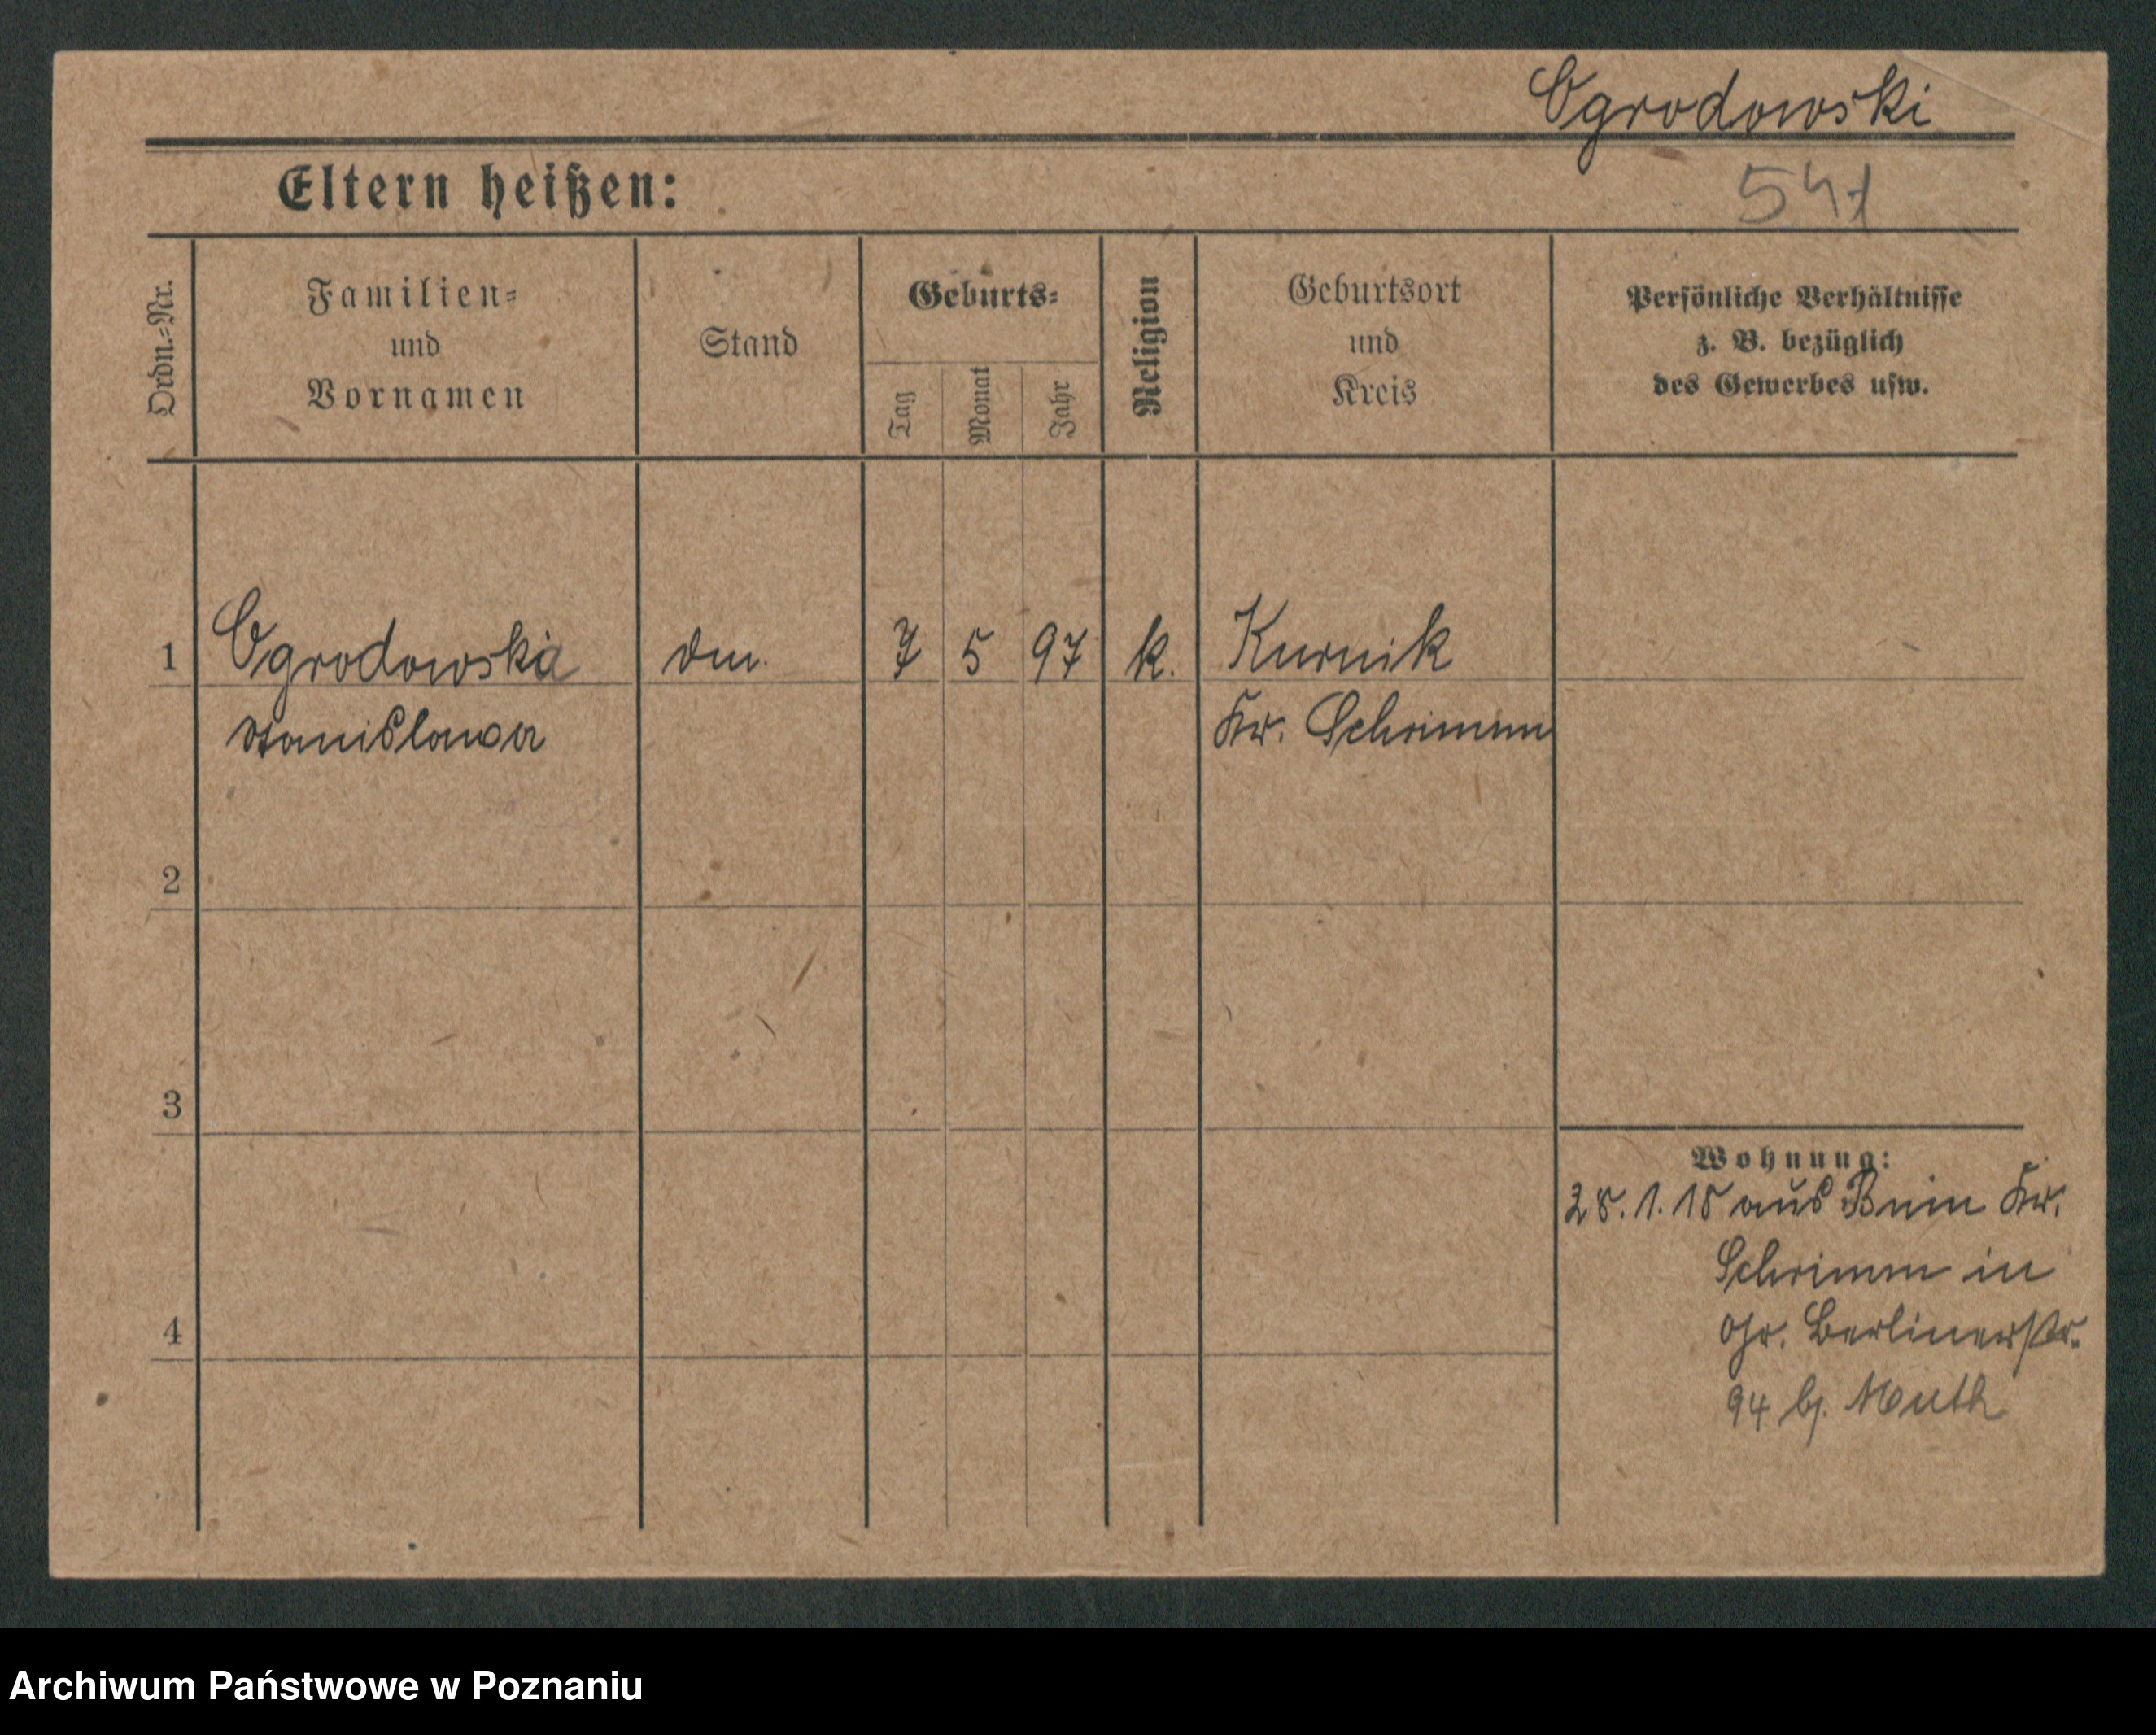 Ogrodowski
Eltern heißen:
541
Ordn.-Nr.
Familien-
und
Vornamen
Stand
Geburts-
Tag
Monat
Jahr
Religion
Geburtsort
und
Kreis
Persönliche Verhältnisse
z. B. bezüglich
des Gewerbes usw.
1 Ogrodowska 7 5 97 k. Kurnik
Stanislawa Kr. Schrimm
2
3
Wohnung:
28.1.18 aus Bnin Kr.
Schrimm in
Gr. Berlinerstr.
4
94 bj. Muth
Archiwum Państwowe w Poznaniu